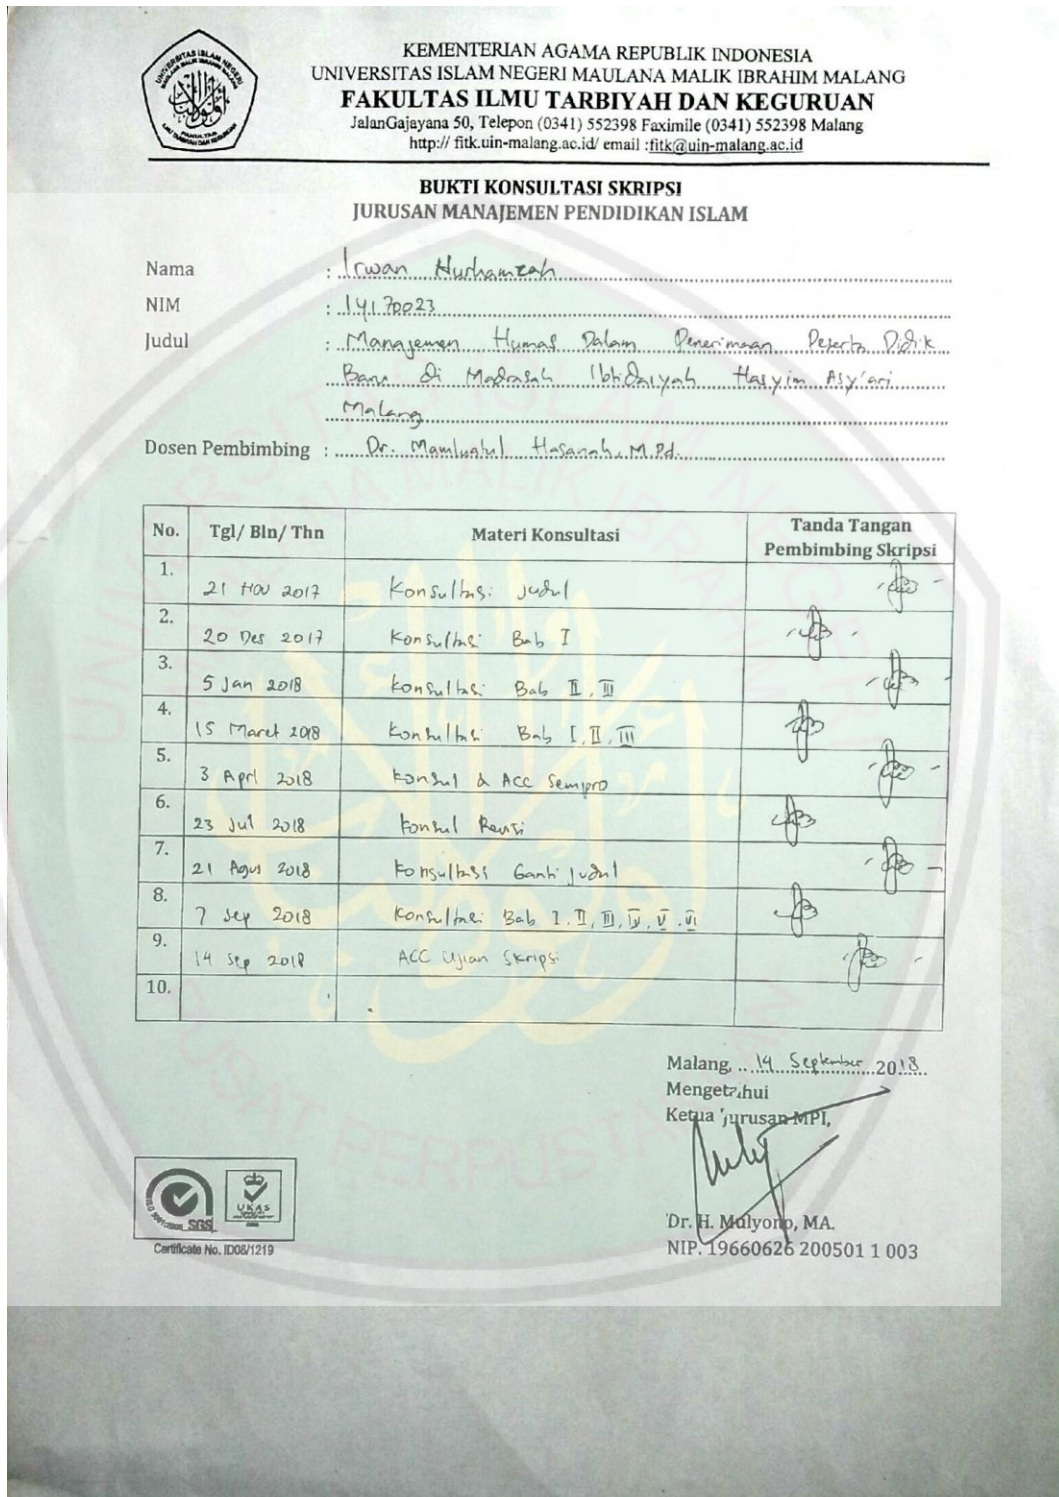 KEMENTERIAN AGAMA REPUBLIK INDONESIA
UNIVERSITAS ISLAM NEGERI MAULANA MALIK IBRAHIM MALANG
FAKULTAS ILMU TARBIYAH DAN KEGURUAN
JalanGajayana 50, Telepon (0341) 552398 Faximile (0341) 552398 Malang
http:// fitk.uin-malang.ac.id/ email :fitk@uin-malang.ac.id
BUKTI KONSULTASI SKRIPSI
JURUSAN MANAJEMEN PENDIDIKAN ISLAM
Nama : Irwan Nurhamzah
NIM : 14170023
Judul : Manajemen Humas Dalam Penerimaan Peserta Didik
Baru di Madrasah Ibtidaiyah Hasyim Asy'ari
Malang
Dosen Pembimbing : Dr. Mamluatul Hasanah, M.Pd.
No. Tgl/ Bln/ Thn Materi Konsultasi Tanda Tangan Pembimbing Skripsi
1. 21 Nov 2017 Konsultasi Judul
2. 20 Des 2017 Konsultasi Bab I
3. 5 Jan 2018 Konsultasi Bab II, III
4. 15 Maret 2018 Konsultasi Bab I, II, III
5. 3 Aprl 2018 Konsul & ACC Sempro
6. 23 Jul 2018 Konsul Revisi
7. 21 Agus 2018 Konsultasi Ganti Judul
8. 7 Sep 2018 Konsultasi Bab I, II, III, IV, V, VI
9. 14 Sep 2018 ACC Ujian Skripsi
10.
Malang, 14 September 2018
Mengetahui
Ketua Jurusan MPI,
Dr. H. Mulyono, MA.
NIP. 19660626 200501 1 003
SGS
UKAS
Certificate No. ID08/1219